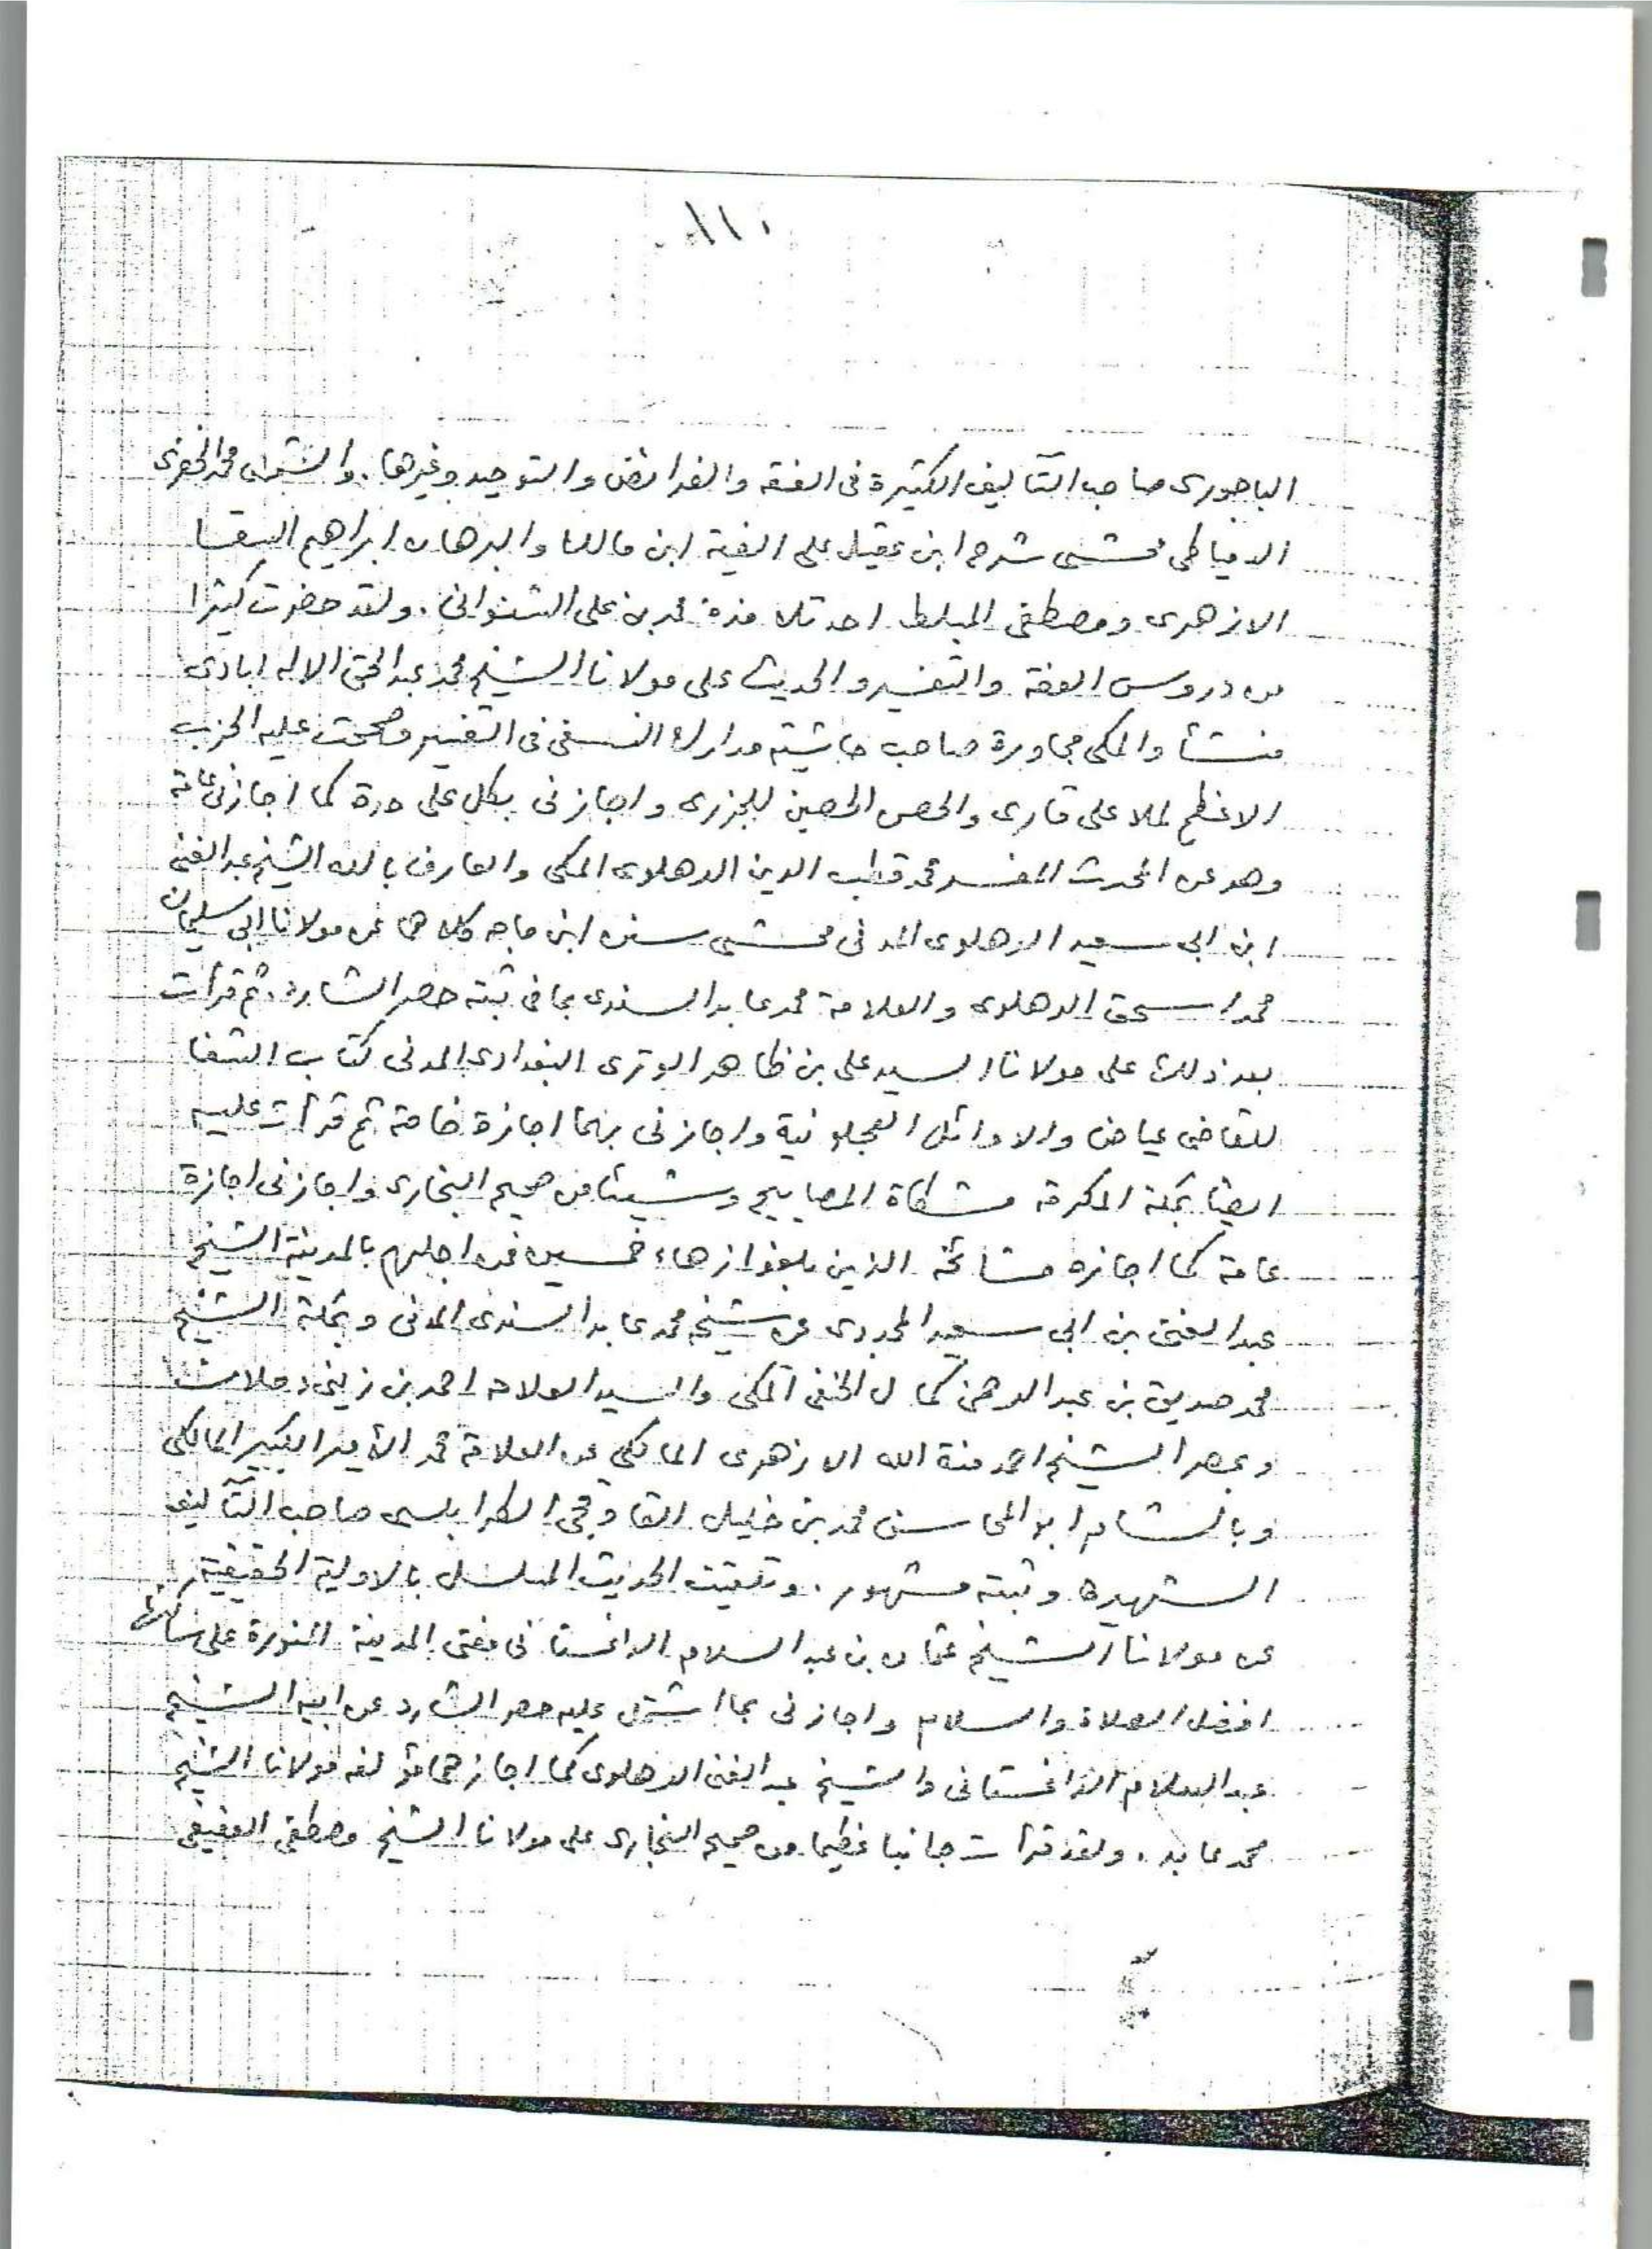 الباجورى صاحب التآليف الكثيرة فى الفقه والفرائض والتوحيد وغيرها. والشمس محمد الخضرى
الدمياطى محشى شرح ابن عقيل على الفية ابن مالك والبرهان ابراهيم السقا
الازهرى ومصطفى المبلط احد تلامذة محمد بن على الشنوانى. ولقد حضرت كثيرا
من دروس الفقه والتفسير والحديث على مولانا الشيخ محمد عبد الحق الاله ابادى
منشأ والمكى مجاورة صاحب حاشيته مدارك النسفى فى التفسير وصححت عليه الحزب
الاعظم لملا على قارى والحصن الحصين للجزرى واجازنى بكل على حدة كما اجازنى عامة
وهو عن المحدث المفسر محمد قطب الدين الدهلوى المكى والعارف بالله الشيخ عبد الغنى
ابن ابى سعيد الدهلوى المدنى محشى سنن ابن ماجه كلاهما عن مولانا ابى سليمان
محمد اسحق الدهلوى والعلامة محمد عابد السندى بما فى ثبته حصر الشارد. ثم قرأت
بعد ذلك على مولانا السيد على بن ظاهر الوترى البغدادى المدنى كتاب الشفا
للقاضى عياض والاوائل العجلونية واجازنى بهما اجازة خاصة ثم قرأت عليه
ايضا بمكة المكرمة مشكاة المصابيح وشيئا من صحيح البخارى واجازنى اجازة
عامة كما اجازه مشائخه الذين بلغوا زهاء خمسين فمن اجلهم بالمدينة الشيخ
عبد الغنى بن ابى سعيد المجددى عن شيخه محمد عابد السندى المدنى وبمكة الشيخ
محمد صديق بن عبد الرحمن كمال الحنفى المكى والسيد العلامة احمد بن زينى دحلان
وبمصر الشيخ احمد منة الله الازهرى المالكى عن العلامة محمد الأمير الكبير المالكى
وبالشام ابو المحاسن محمد بن خليل القاوقجى الطرابلسى صاحب التآليف
الشهيرة وثبته مشهور. وتلقيت الحديث المسلسل بالاولية الحقيقية
عن مولانا الشيخ عثمان بن عبد السلام الداغستانى مفتى المدينة المنورة على ساكنها
افضل الصلاة والسلام واجازنى بما اشتمل عليه حصر الشارد عن ابيه الشيخ
عبد السلام الداغستانى والشيخ عبد الغنى الدهلوى كما اجازهما مؤلفه مولانا الشيخ
محمد عابد. ولقد قرأت جانبا عظيما من صحيح البخارى على مولانا الشيخ مصطفى العفيفى